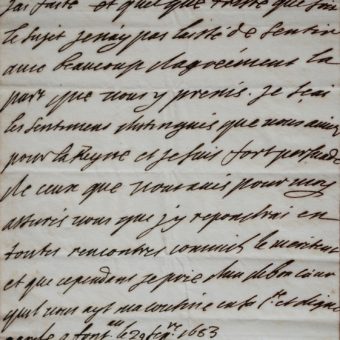 j'ai faite et quelque triste que soit
le sujet je n'ay pas laissé de sentir
avec beaucoup d'agrément la
part que vous y prenés. je sçai
les sentimens distingués que vous aviez
pour la Reyne et je suis fort persuadé
de ceux que vous avés pour moy
assurés vous que j'y repondrai en
toutes rencontres comme il le merite
et que cependant je prie Dieu de bon cœur
qu'il vous ayt ma cousine en sa Ste et digne
garde a font. le 29 1683